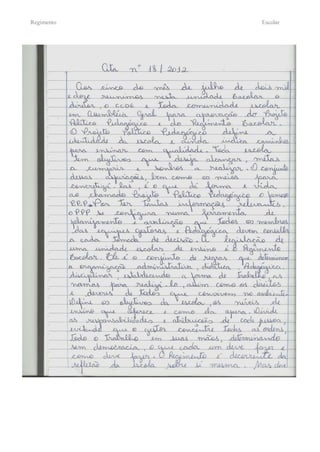 Regimento Escolar
Ata nº 18 / 2012
Aos cinco do mês de julho de dois mil
e doze reunimos nesta unidade Escolar o
diretor, o CCDE e toda comunidade escolar
em Assembleia Geral para aprovação do Projeto
Político Pedagógico e do Regimento Escolar.
O Projeto Político Pedagógico define a
identidade da escola e indica caminhos
para ensinar com qualidade. Toda escola
tem objetivos que deseja alcançar, metas
a cumprir e sonhos a realizar. O conjunto
dessas aspirações, bem como os meios para
concretizá-las, é o que dá forma e vida
ao chamado Projeto Político Pedagógico o famoso
P.P.P. Por ter tantas informações relevantes,
o PPP se configura numa ferramenta de
planejamento e avaliação que todos os membros
das equipes gestoras e Pedagógica devem consultar
a cada tomada de decisão. A legislação de
uma unidade escolar de ensino é o Regimento
Escolar. Ele é o conjunto de regras que determinam
a organização administrativa, didática, Pedagógica,
disciplinar, estabelecendo a forma de trabalho, as
normas para realizá-lo, assim como os direitos
e deveres de todos que convivem no ambiente.
Define os objetivos da escola, os níveis de
ensino que oferece e como ela opera. Divide
as responsabilidades e atribuições de cada pessoa,
evitando que o gestor concentre todas as ordens,
todo o trabalho em suas mãos, determinando
sem democracia, o que cada um deve fazer e
como deve fazer. O Regimento é decorrente da
reflexão da escola sobre si mesma.